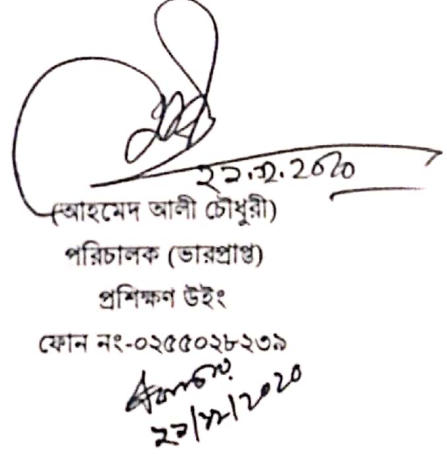 ২২.১২.২০২০
(আহমেদ আলী চৌধুরী)
পরিচালক (ভারপ্রাপ্ত)
প্রশিক্ষণ উইং
ফোন নং-০২৫৫০২৮২৩৯
২২/১২/২০২০